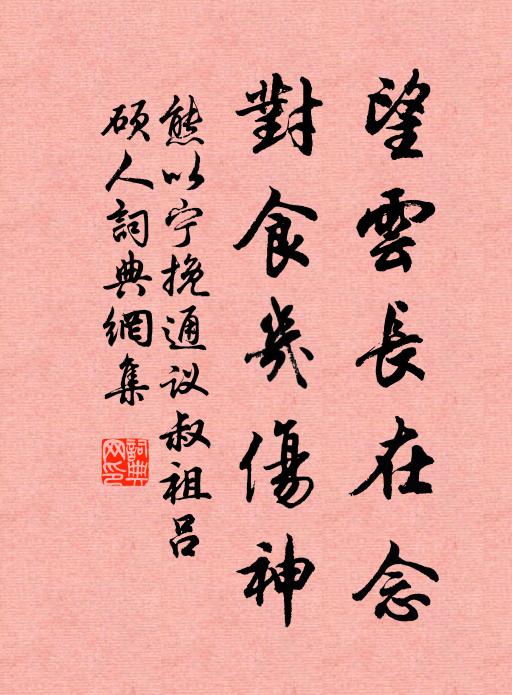 望雲長在念
對食幾傷神
熊以宁挽通议叔祖吕
硕人詞典網集
詞典網印